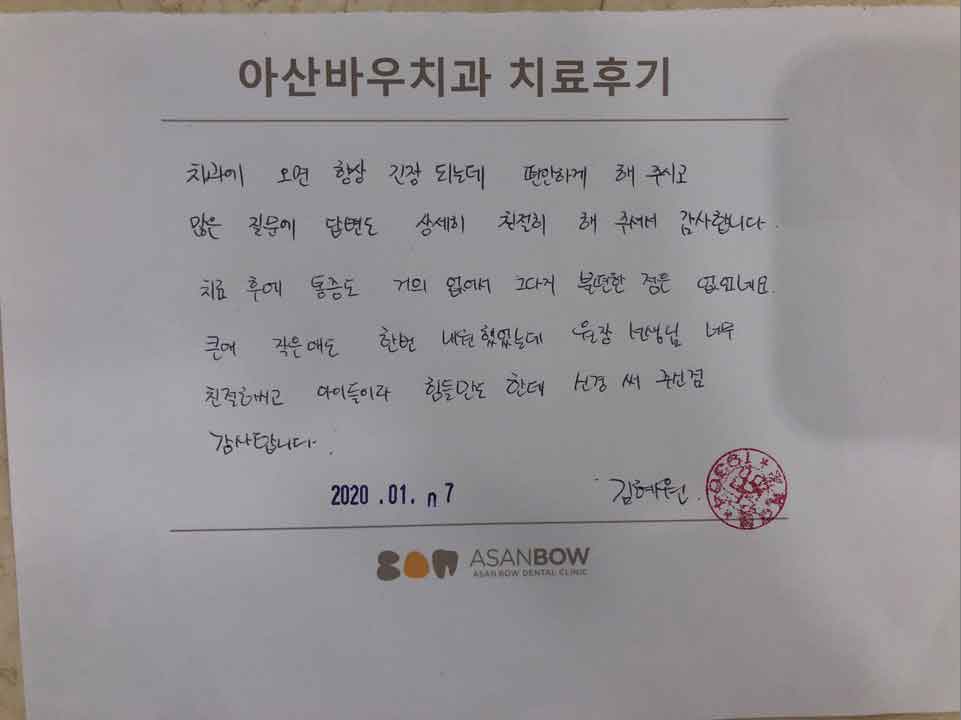 아산바우치과 치료후기
치과에 오면 항상 긴장 되는데 편안하게 해 주시고
많은 질문에 답변도 상세히 친절히 해 주셔서 감사합니다.
치료 후에 통증도 거의 없어서 그다지 불편한 점은 없었네요.
큰애 작은애도 한번 내원했었는데 원장 선생님 너무
친절하시고 아이들이라 힘들만도 한데 신경 써 주신점
감사합니다.
2020 .01. 7
김혜원.
ASANBOW
ASAN BOW DENTAL CLINIC